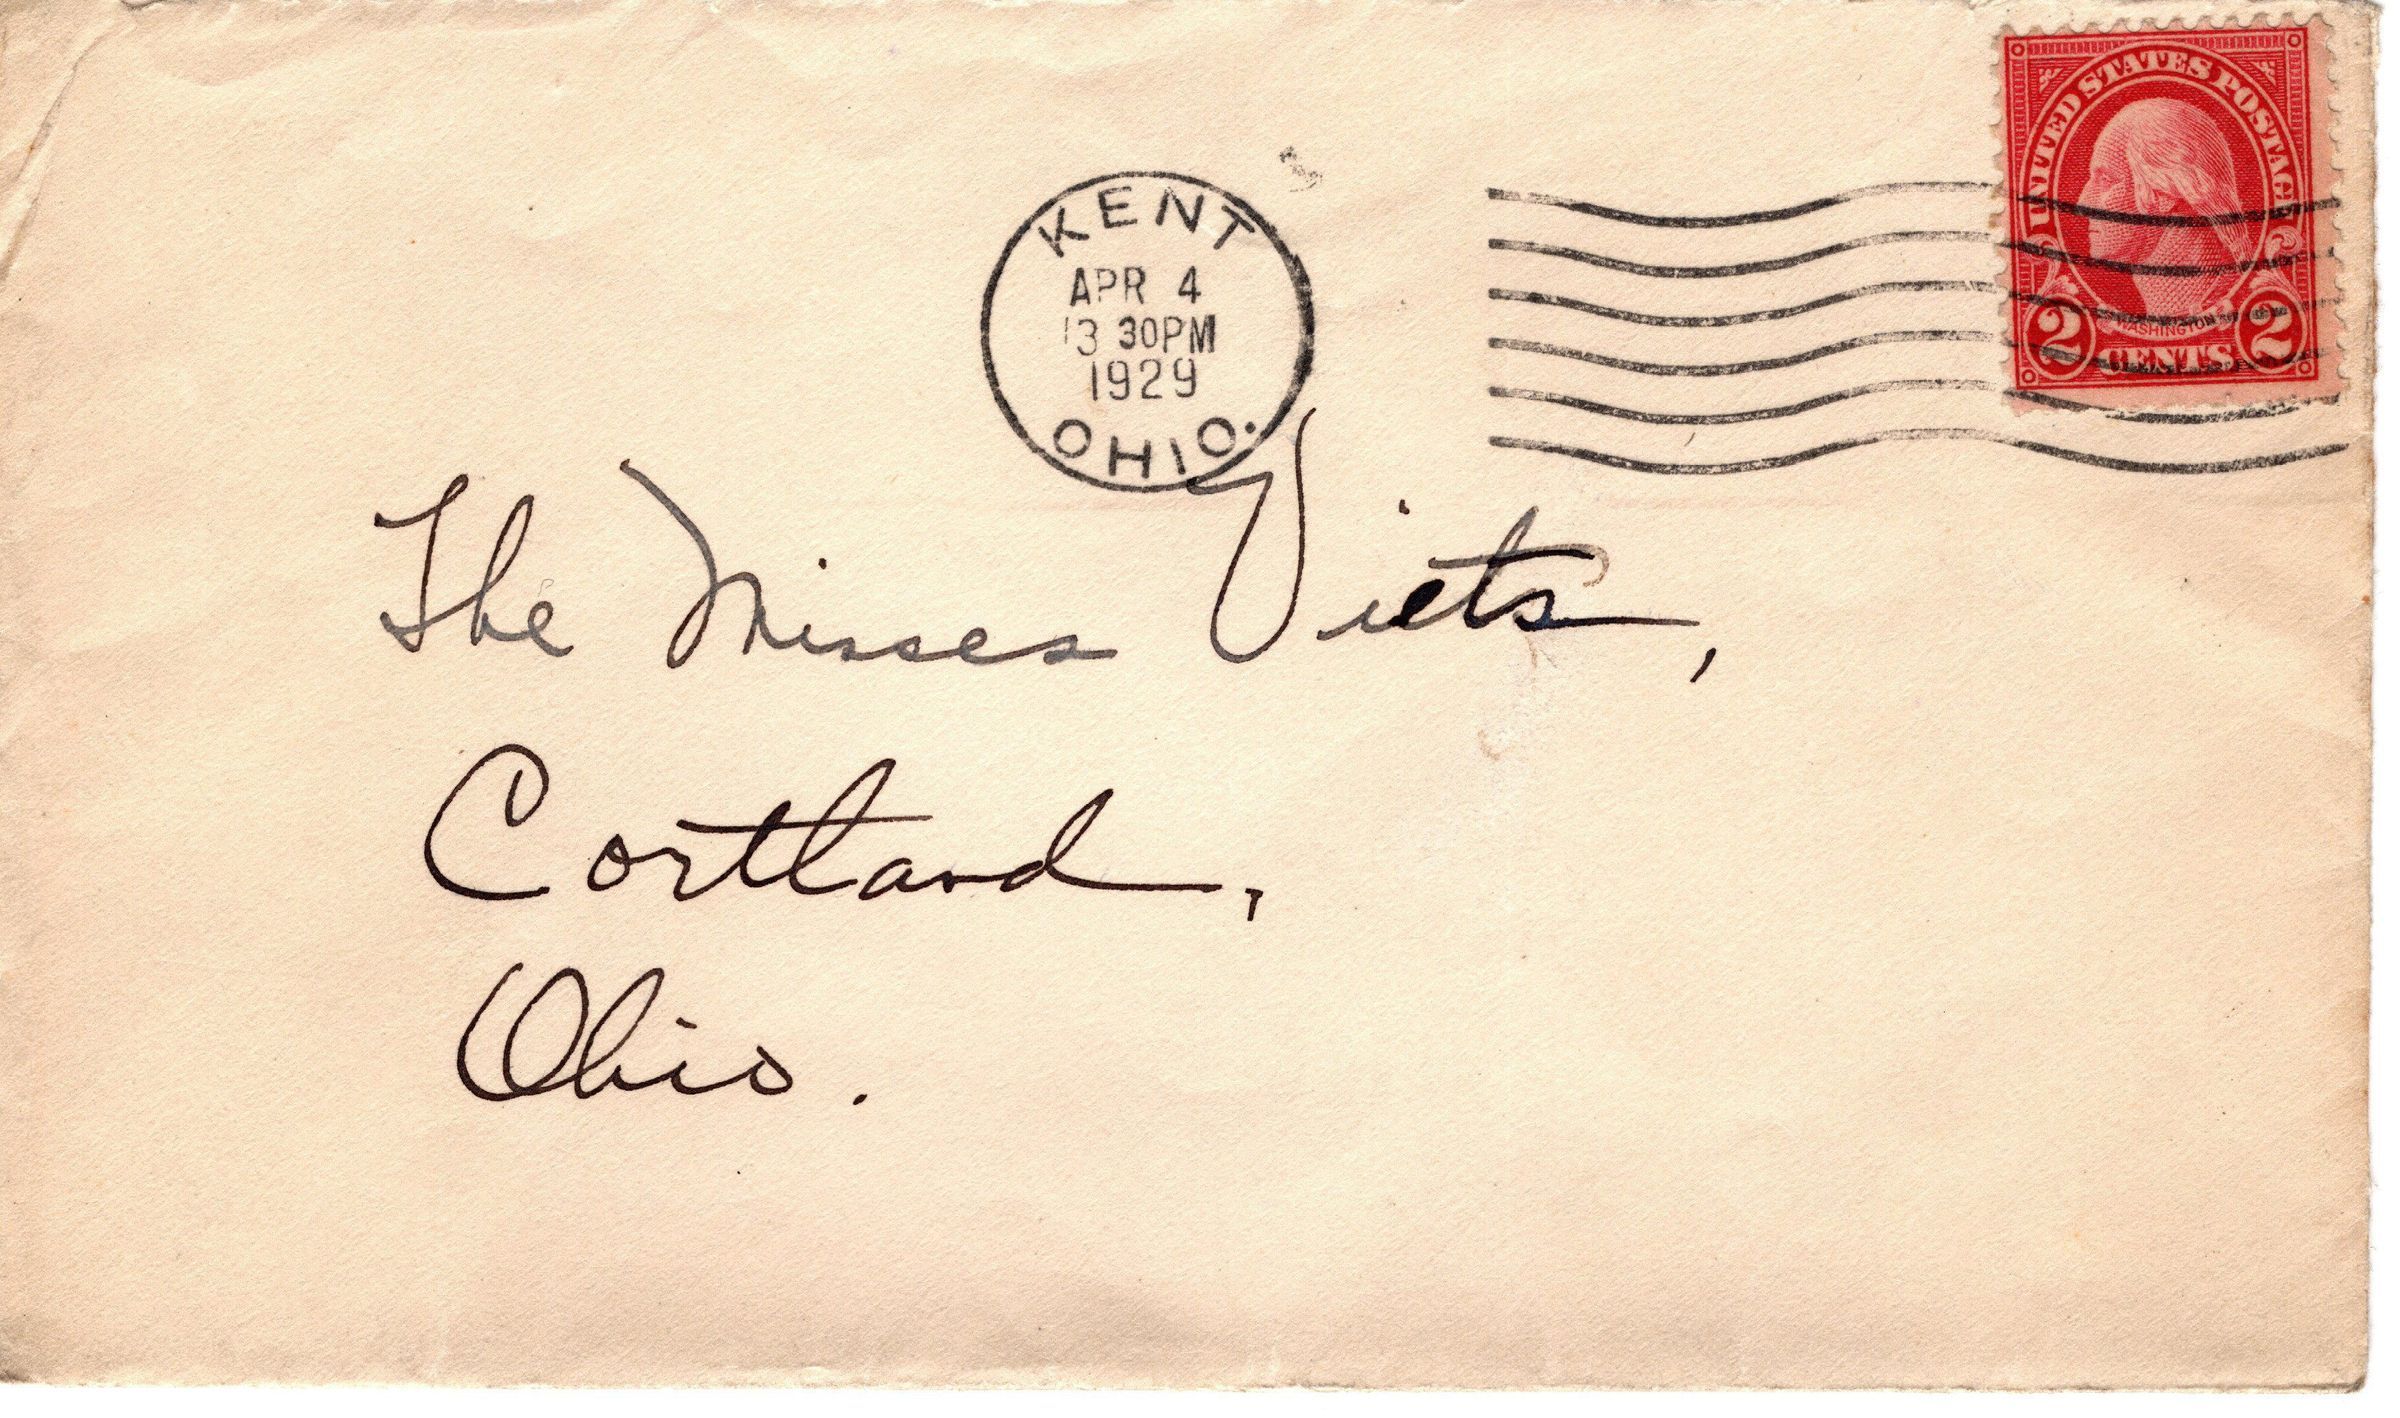 UNITED STATES POSTAGE
WASHINGTON
2 CENTS 2
KENT
APR 4
3 30PM
1929
OHIO.
The Misses Viets,
Cortland,
Ohio.